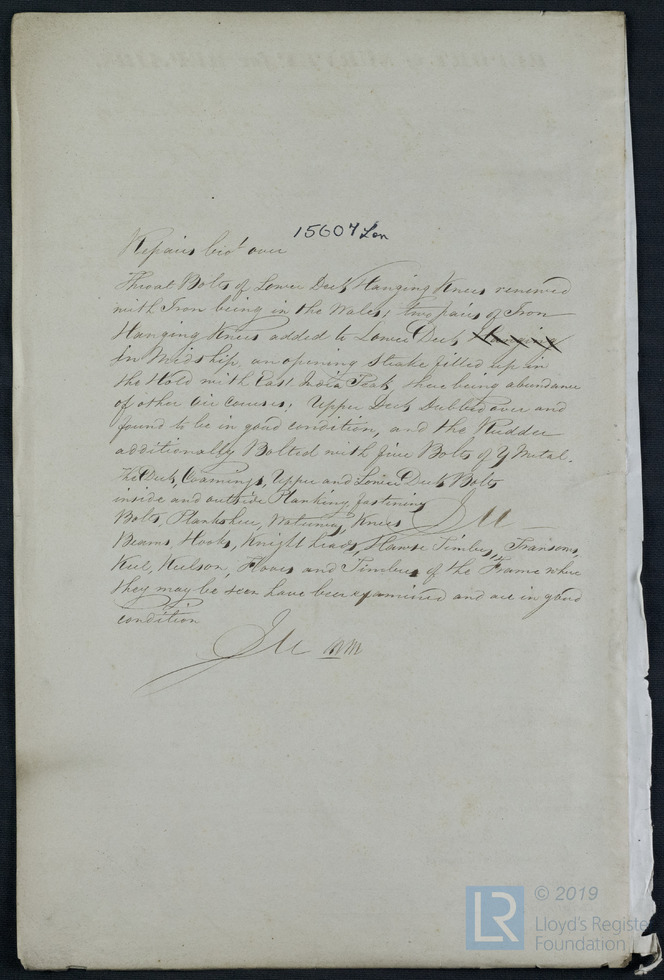 15607 Lon
Repairs bro't over
Throat Bolts of Lower Deck Hanging Knees renewed
with Iron being in the Wales, two pairs of Iron
Hanging Knees added to Lower Deck Hanging
in Midship, an opening Strake filled up in
the Hold with East India Teak, there being abundance
of other air courses; Upper Deck Dubbed over and
found to be in good condition, and the Rudder
additionally Bolted with five Bolts of Y Metal.
The Deck, Coamings, Upper and Lower Deck Bolts
inside and outside Planking fastenings
Bolts, Planksheer, Waterways, Knees JM
Beams, Hooks, Knightheads, Hawse Timbers, Transoms,
Keel, Keelson, Floors and Timbers of the Frame where
they may be seen have been examined and are in good
condition
JM
© 2019
LR
Lloyd's Registe
Foundation